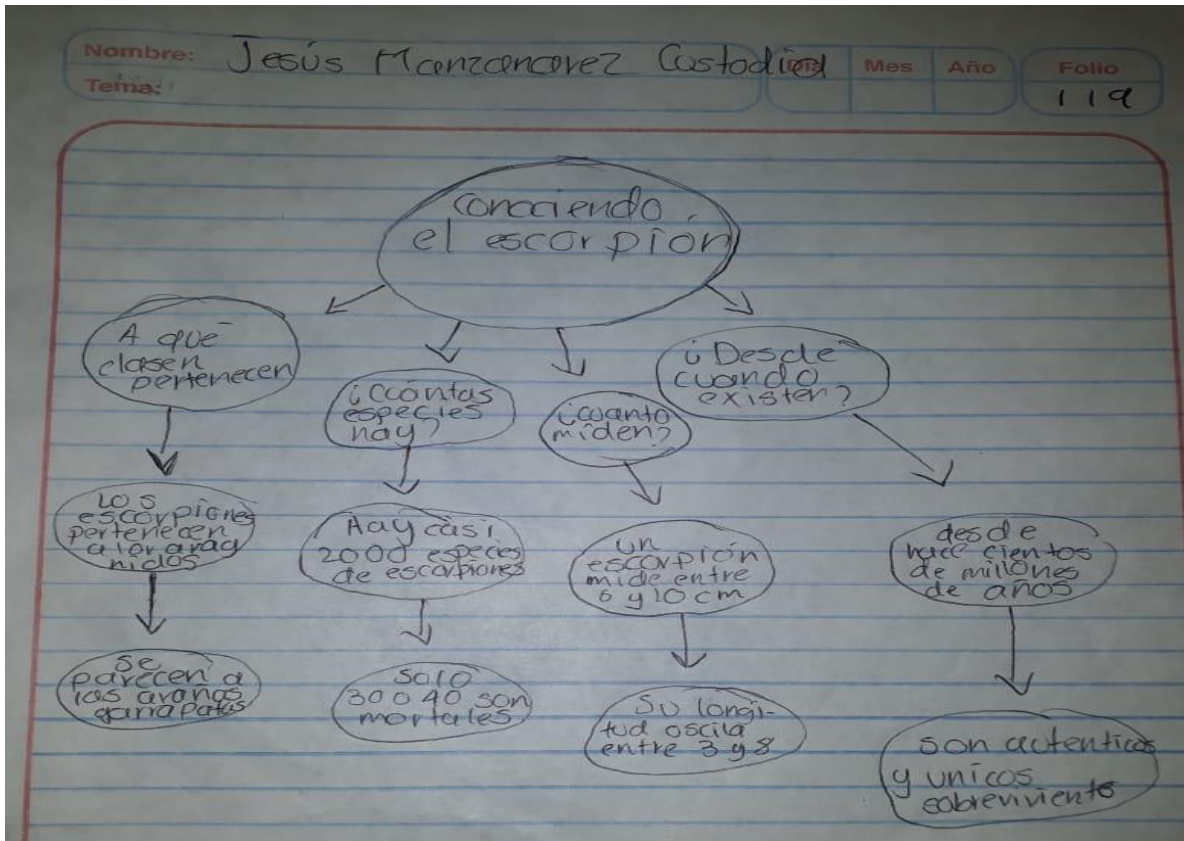 Nombre: Jesús Manzanarez Custodio
Mes Año Folio
Tema: 119
Conociendo
el escorpión
A que
clasen
pertenecen
¿Ccóntas
especies
hay?
¿cuanto
miden?
¿Desde
cuando
existen?
Los
escorpiones
pertenecen
a lor arag
nidos
Hay casi
2000 especies
de escorpiones
un
escorpión
mide entre
6 y 10 cm
desde
hace cientos
de millones
de años
se
parecen a
las arañas
garrapatas
solo
30 o 40 son
mortales
Su longi-
tud oscila
entre 3 y 8
son autenticos
y unicos
sobreviviente